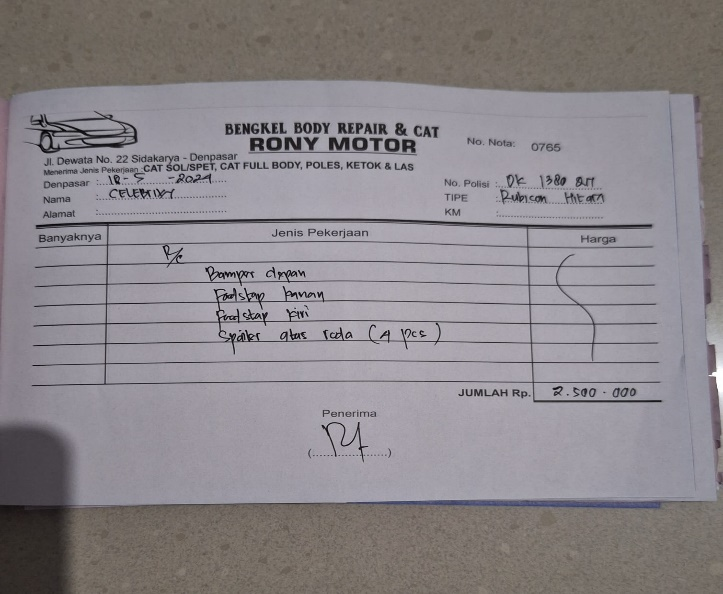 BENGKEL BODY REPAIR & CAT
RONY MOTOR
No. Nota: 0765
Jl. Dewata No. 22 Sidakarya - Denpasar
Menerima Jenis Pekerjaan : CAT SOL/SPET, CAT FULL BODY, POLES, KETOK & LAS
Denpasar : 18-5-2024
No. Polisi : DK 1380
Nama :
TIPE : Rubicon Hitam
Alamat :
KM :
Banyaknya Jenis Pekerjaan Harga
Bamper depan
Foodstap kanan
Foodstap kiri
Spoiler atas roda (4 pcs)
JUMLAH Rp. 2.500-000
Penerima